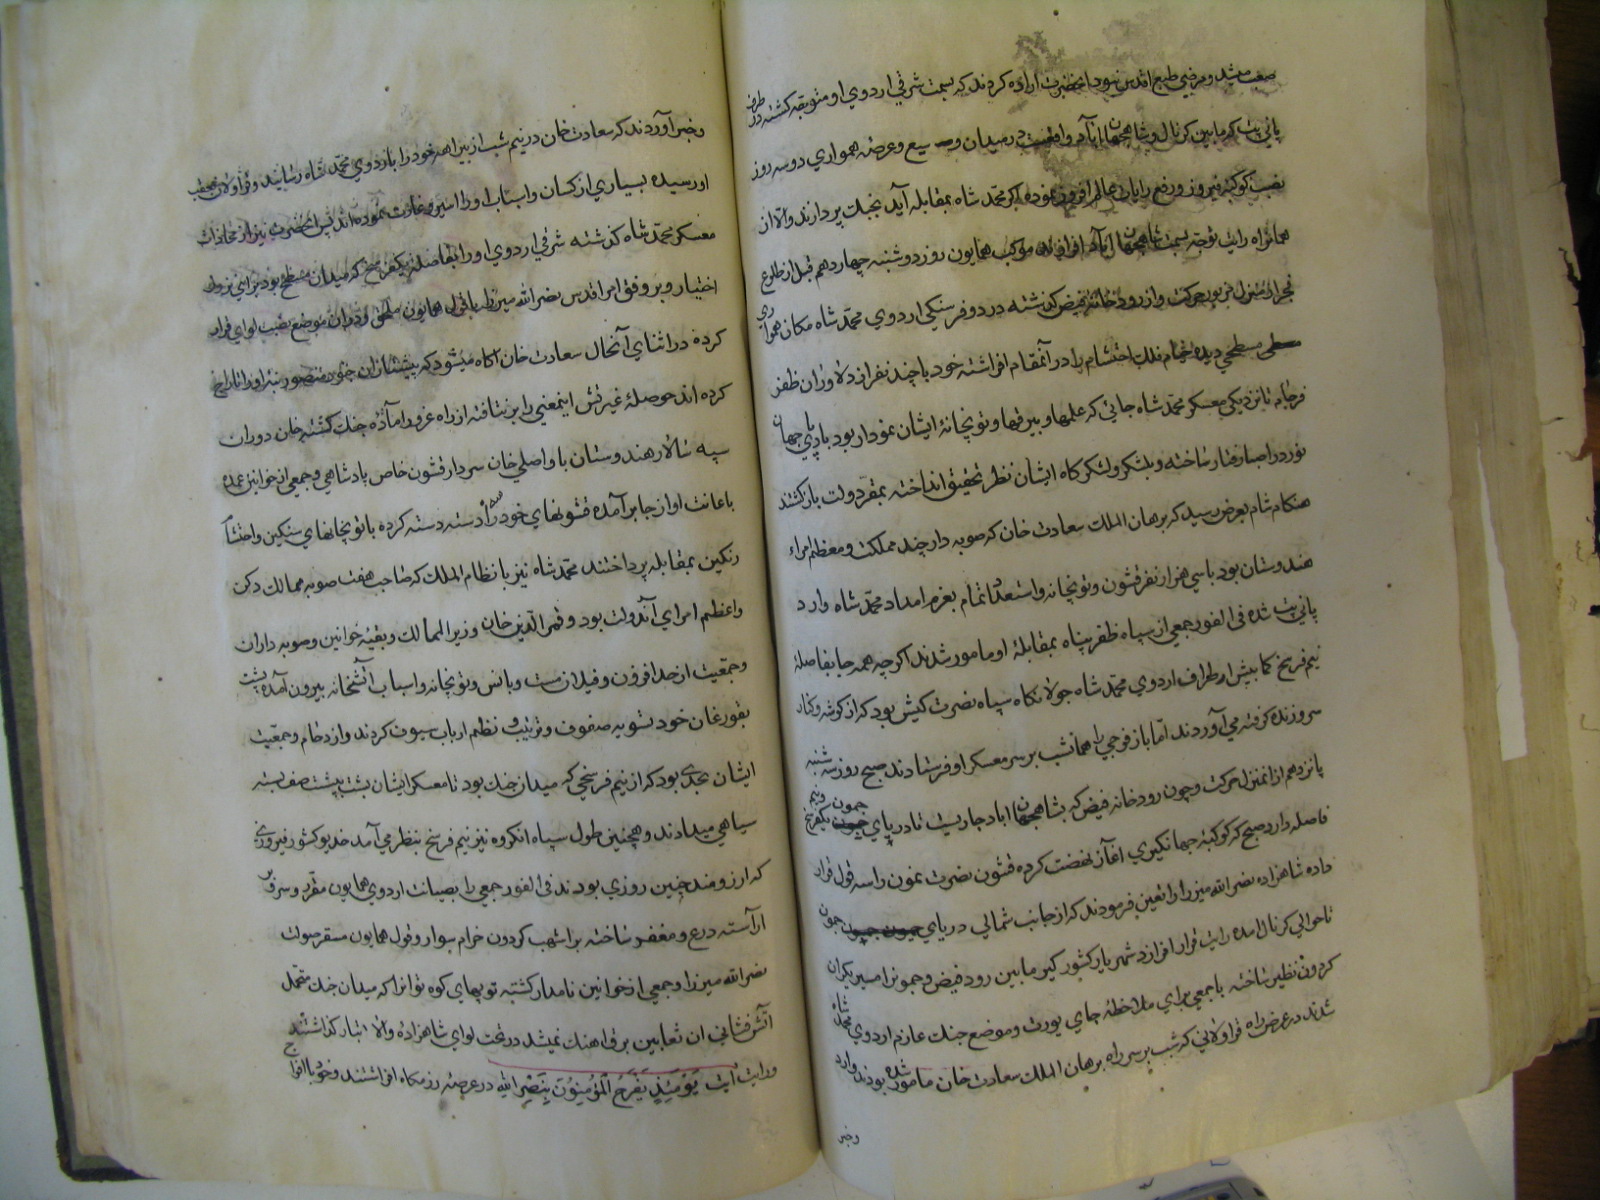 صعب میشد ومرضی طبع اقدس نبود انحضرت اراده کردند که بسمت شرقی اردوی او متوجه کشته در طرف
پانی پت که مابین کرنال وشاهجهان اباد واقعست در میدان وسیع وعرصه همواری دوسه روز
نصب کوکبه فیروز ورفع رایات عالم افروز نموده اکر محمد شاه بمقابله آید بجنک پردازند والا از
همانراه رایت توجه بسمت شاهجهان اباد افرازند موکب همایون روز دوشنبه چهاردهم قبل از طلوع
فجر از منزل مزبور حرکت واز رودخانه فیض کذشته در دو فرسنکی اردوی محمد شاه مکان همواری
مسطحی دیده خیام فلک احتشام را در آنمقام افراشته خود با چند نفر از دلاوران ظفر
فرجام تا نزدیکی معسکر محمد شاه جائی که علمها وبیرقها وتوپخانه ایشان نمودار بود بادپای جهان
نورد را صبا رفتار ساخته وبلشکر ولشکرکاه ایشان نظر تحقیق انداخته بمقر دولت بازکشتند
هنکام شام بعرض رسید که برهان الملک سعادت خان که صوبه دار چند مملکت ومعظم امراء
هندوستان بود باسی هزار نفر قشون وتوپخانه واستعداد تمام بعزم امداد محمد شاه وارد
پانی پت شده فی الفور جمعی از سپاه ظفر پناه بمقابلهٔ او مامور شدند اکرچه همه جا بفاصلهٔ
نیم فرسخ کما بیش از طراف اردوی محمد شاه جولانکاه سپاه نصرت کیش بود که از کوشه وکنار
سر وزنده کرفته می آوردند اما باز فوجی را همانشب بر سر معسکر او فرستادند صبح روز سه شنبه
پانزدهم از انمنزل حرکت وچون رودخانه فیض که بشاهجهان اباد جاریست تا دریای جمون یکفرسخ ونیم
فاصله دارد صبح که کوکبهٔ جهانکیری اغاز نهضت کرده قشون نصرت نمون را سه قول قرار
داده شاهزاده نصرالله میرزا را تعین فرمودند که از جانب شمالی دریای جمون
تا حوالی کرنال امده رایت قرار افرازد شهریار کشورکیر مابین رود فیض وجمون را مسیر یکران
کردون نظیر ساخته با جمعی برای ملاحظهٔ جای یورت وموضع جنک عازم اردوی محمد شاه
شدند در عرض راه قراولانی که شب بر سر راه برهان الملک سعادت خان مامور شده بودند وارد
وخبر
وخبر آوردند که سعادت خان در نیم شب از بیراهه خود را باردوی محمد شاه رسانید وقراولان بعقب
او رسیده بسیاری از کسان واسباب او را اسیر وغارت نموده اند پس انحضرت نیز از محاذات
معسکر محمد شاه کذشته شرقی اردوی او را بفاصله یکفرسخ که میدان مسطح بود برای نزول
اختیار وبر وفق امر اقدس نصرالله میرزا با قول همایون ملحق ودران موضع نصب لوای قرار
کرده در اثنای آنحال سعادت خان آکاه میشود که پیشتازان جنود منصور بنه او را تاراج
کرده اند حوصلهٔ غیرتش اینمعنی را برنتافته از راه غرور آماده جنک کشته خان دوران
سپه سالار هندوستان با واصلی خان سردار قشون خاص پادشاهی وجمعی از خوانین عمده
باعانت او از جا برآمده قشونهای خود را دسته دسته کرده با توپخانهای سنکین واحتشام
رنکین بمقابله پرداختند محمد شاه نیز با نظام الملک که صاحب هفت صوبه ممالک دکن
واعظم امرای آندولت بود وقمر الدین خان وزیر الممالک وبقیه خوانین وصوبه داران
وجمعیت از حد افزون وفیلان مست وبانس وتوپخانه واسباب آتشخانه بیرون آمده پشت
بقورغان خود تسویه صفوف وترتیب ونظم ارباب سیوف کردند وازدحام وجمعیت
ایشان بحدی بود که از نیم فرسخی که میدان جنک بود تا معسکر ایشان پشت بپشت صف بسته
سیاهی میدادند وهمچنین طول سپاه انکروه نیز نیم فرسخ بنظر می آمد خدیو کشور فیروزی
که ارزومند چنین روزی بودند فی الفور جمعی را بصیانت اردوی همایون مقرر وسر وبر
ارآسته درع ومغفر ساخته بر اشهب کردون خرام سوار وقول همایون مستقر صولت
نصرالله میرزا وجمعی از خوانین نامدار کشته توپهای کوه توانرا که میدان جنک متحمل
آتش فشانی ان ثعابین برق اهنک نمیشد در تحت لوای شاهزاده والا تبار کذاشتند
ورایت آیت یَوْمَئِذٍ یَفْرَحُ الْمُؤْمِنُونَ بِنَصْرِ الله در عرصه رزمکاه افراشتند وخود با افواج